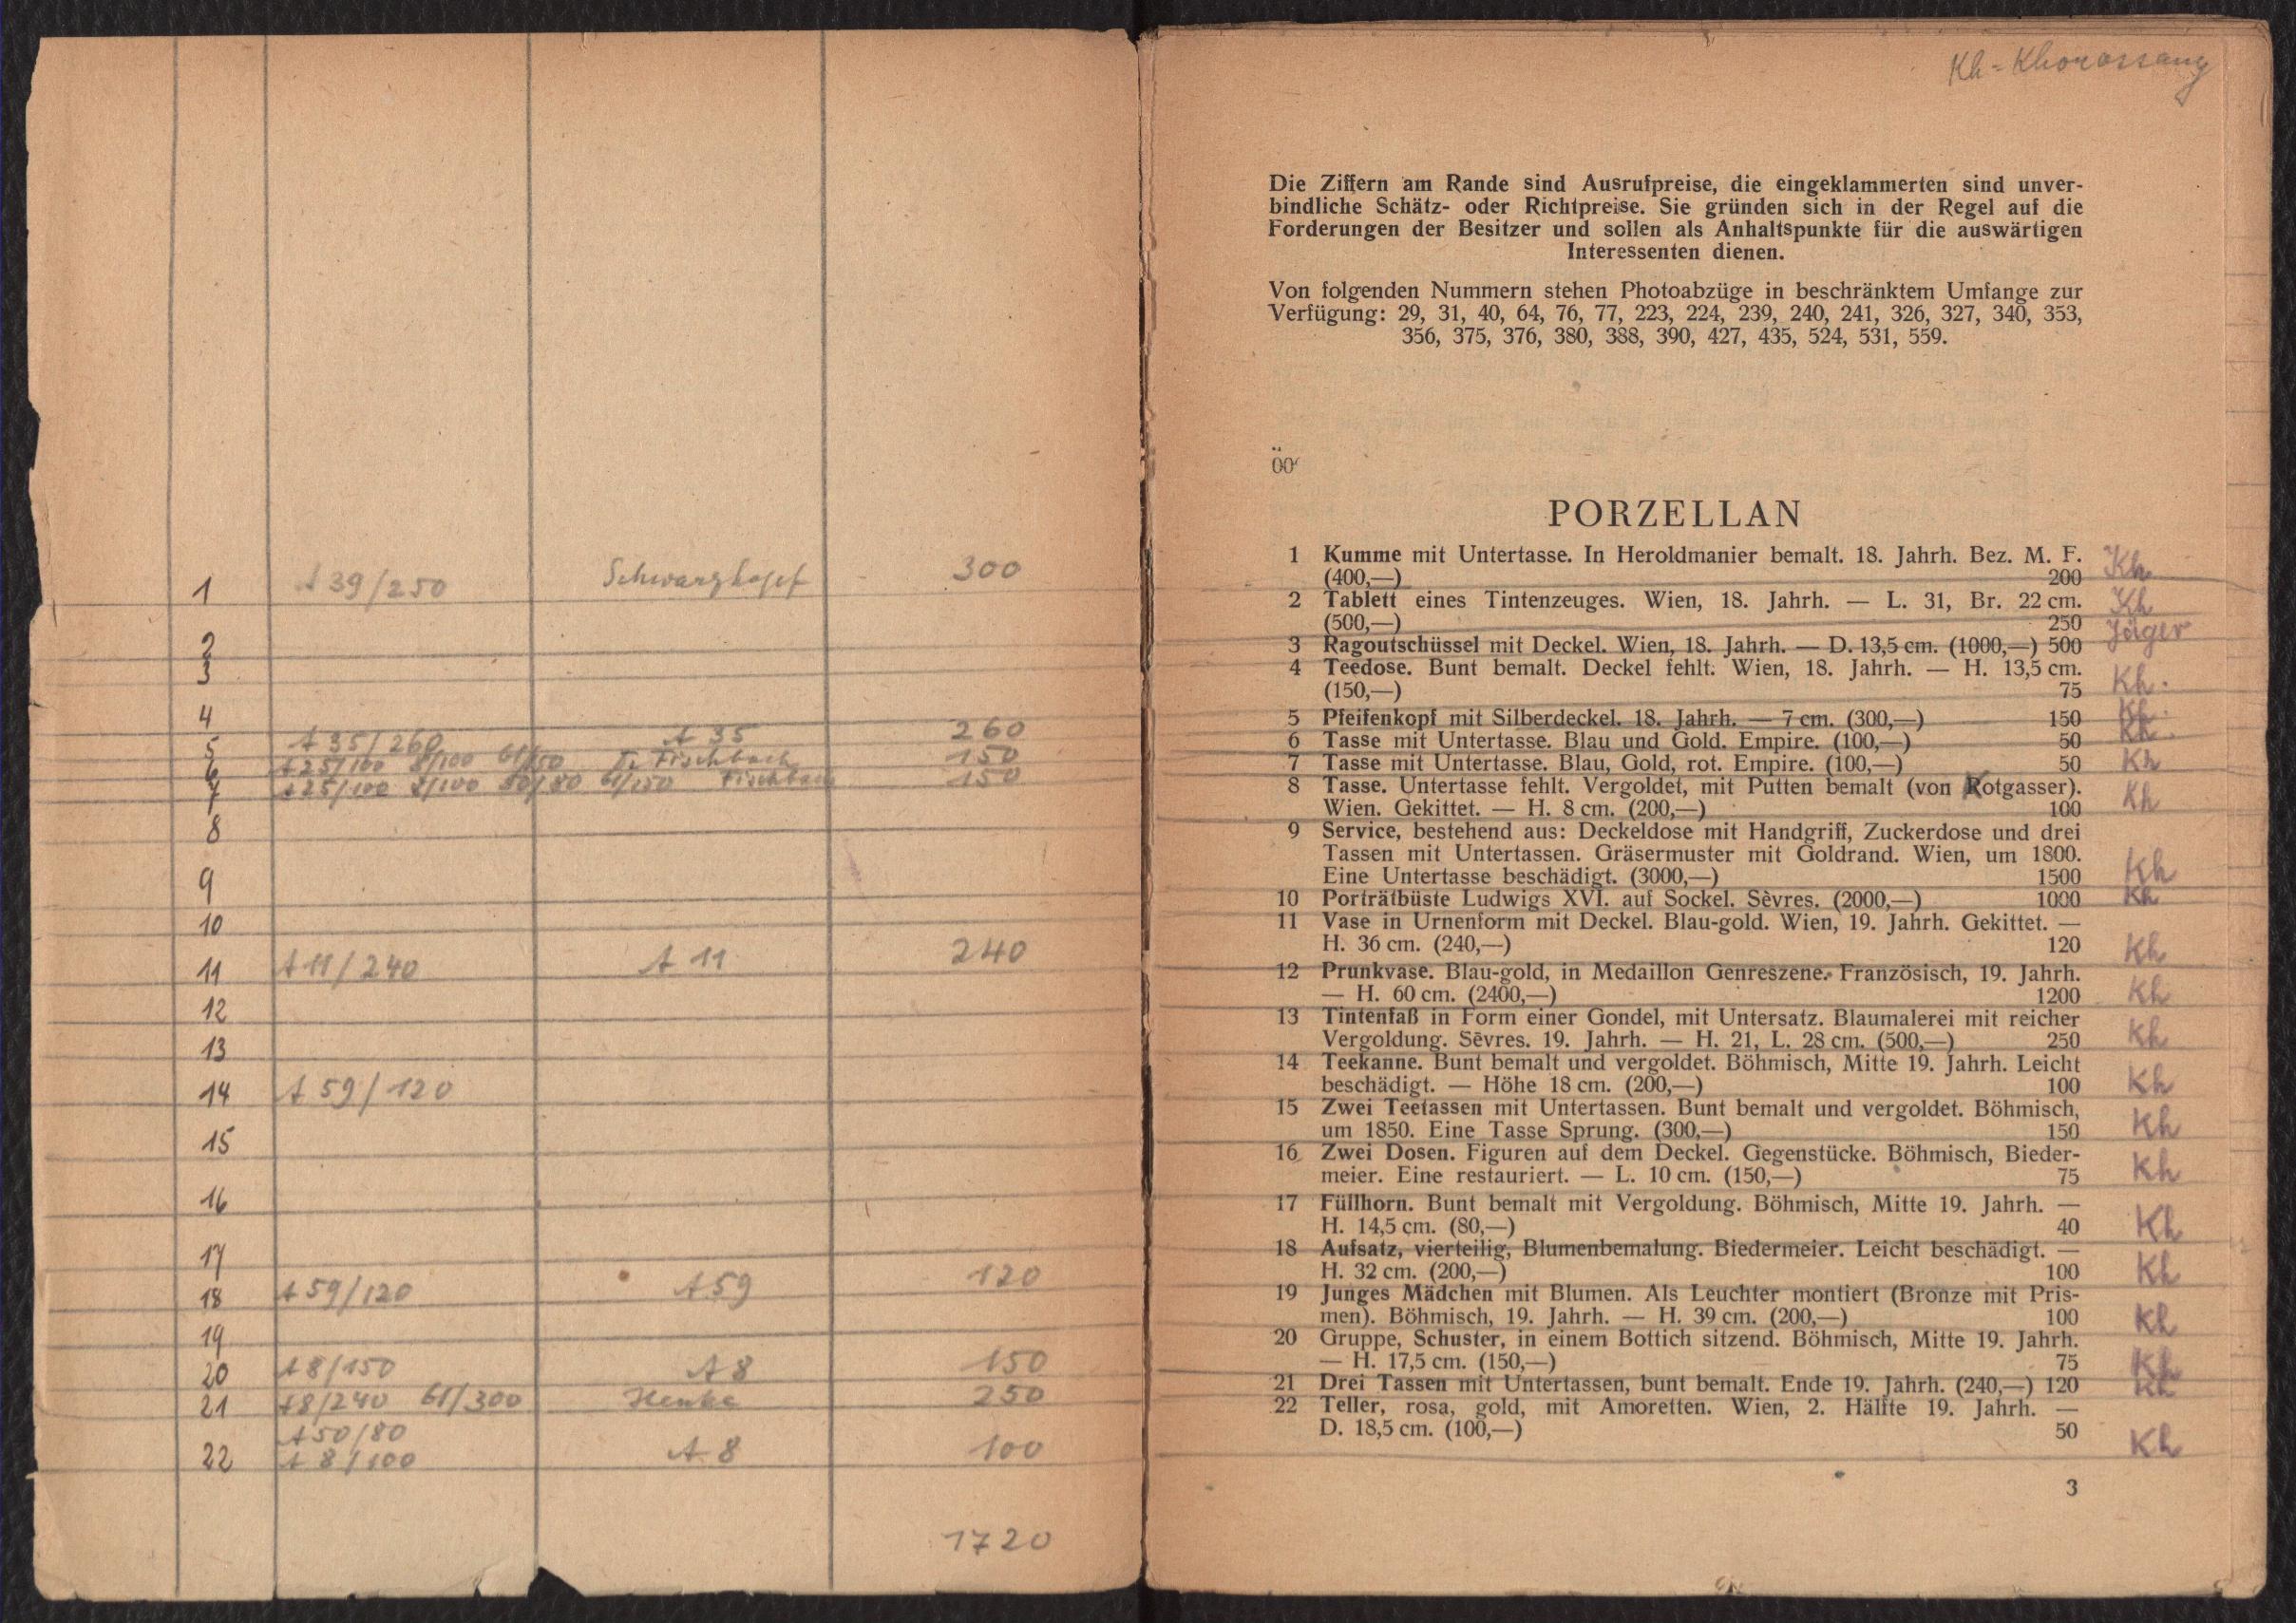 1 A 39/250 Schwarzkopf 300
2
3
4
5 A 35/260 A 35 260
6 A 25/100 8/100 61/150 Fischbach 150
7 A 25/100 8/100 50/80 61/150 Fischbach 150
8
9
10
11 A 11/240 A 11 240
12
13
14 A 59/120
15
16
17
18 A 59/120 A 59 120
19
20 A 8/150 A 8 150
21 A 8/240 61/300 Henke 250
A 50/80
22 A 8/100 A 8 100
1720
Kh = Khorassang
Die Ziffern am Rande sind Ausrufpreise, die eingeklammerten sind unver-
bindliche Schätz- oder Richtpreise. Sie gründen sich in der Regel auf die
Forderungen der Besitzer und sollen als Anhaltspunkte für die auswärtigen
Interessenten dienen.
Von folgenden Nummern stehen Photoabzüge in beschränktem Umfange zur
Verfügung: 29, 31, 40, 64, 76, 77, 223, 224, 239, 240, 241, 326, 327, 340, 353,
356, 375, 376, 380, 388, 390, 427, 435, 524, 531, 559.
PORZELLAN
1 Kumme mit Untertasse. In Heroldmanier bemalt. 18. Jahrh. Bez. M. F.
(400,—) 200 Kh
2 Tablett eines Tintenzeuges. Wien, 18. Jahrh. — L. 31, Br. 22 cm.
(500,—) 250 Kh
3 Ragoutschüssel mit Deckel. Wien, 18. Jahrh. — D. 13,5 cm. (1000,—) 500 Jäger
4 Teedose. Bunt bemalt. Deckel fehlt. Wien, 18. Jahrh. — H. 13,5 cm.
(150,—) 75 Kh.
5 Pfeifenkopf mit Silberdeckel. 18. Jahrh. — 7 cm. (300,—) 150 Kh.
6 Tasse mit Untertasse. Blau und Gold. Empire. (100,—) 50 Kh.
7 Tasse mit Untertasse. Blau, Gold, rot. Empire. (100,—) 50 Kh
8 Tasse. Untertasse fehlt. Vergoldet, mit Putten bemalt (von Kotgasser).
Wien. Gekittet. — H. 8 cm. (200,—) 100 Kh
9 Service, bestehend aus: Deckeldose mit Handgriff, Zuckerdose und drei
Tassen mit Untertassen. Gräsermuster mit Goldrand. Wien, um 1800.
Eine Untertasse beschädigt. (3000,—) 1500 Kh
10 Porträtbüste Ludwigs XVI. auf Sockel. Sèvres. (2000,—) 1000 Kh
11 Vase in Urnenform mit Deckel. Blau-gold. Wien, 19. Jahrh. Gekittet. —
H. 36 cm. (240,—) 120 Kh
12 Prunkvase. Blau-gold, in Medaillon Genreszene. Französisch, 19. Jahrh.
— H. 60 cm. (2400,—) 1200 Kh
13 Tintenfaß in Form einer Gondel, mit Untersatz. Blaumalerei mit reicher
Vergoldung. Sèvres. 19. Jahrh. — H. 21, L. 28 cm. (500,—) 250 Kh
14 Teekanne. Bunt bemalt und vergoldet. Böhmisch, Mitte 19. Jahrh. Leicht
beschädigt. — Höhe 18 cm. (200,—) 100 Kh
15 Zwei Teetassen mit Untertassen. Bunt bemalt und vergoldet. Böhmisch,
um 1850. Eine Tasse Sprung. (300,—) 150 Kh
16 Zwei Dosen. Figuren auf dem Deckel. Gegenstücke. Böhmisch, Bieder-
meier. Eine restauriert. — L. 10 cm. (150,—) 75 Kh
17 Füllhorn. Bunt bemalt mit Vergoldung. Böhmisch, Mitte 19. Jahrh. —
H. 14,5 cm. (80,—) 40 Kh
18 Aufsatz, vierteilig, Blumenbemalung. Biedermeier. Leicht beschädigt. —
H. 32 cm. (200,—) 100 Kh
19 Junges Mädchen mit Blumen. Als Leuchter montiert (Bronze mit Pris-
men). Böhmisch, 19. Jahrh. — H. 39 cm. (200,—) 100 Kh
20 Gruppe, Schuster, in einem Bottich sitzend. Böhmisch, Mitte 19. Jahrh.
— H. 17,5 cm. (150,—) 75 Kh
21 Drei Tassen mit Untertassen, bunt bemalt. Ende 19. Jahrh. (240,—) 120 Kh
22 Teller, rosa, gold, mit Amoretten. Wien, 2. Hälfte 19. Jahrh. —
D. 18,5 cm. (100,—) 50 Kh
3